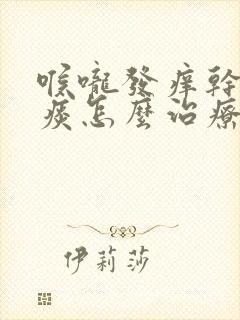 喉嚨發痒幹
痰怎麼治療
伊莉莎